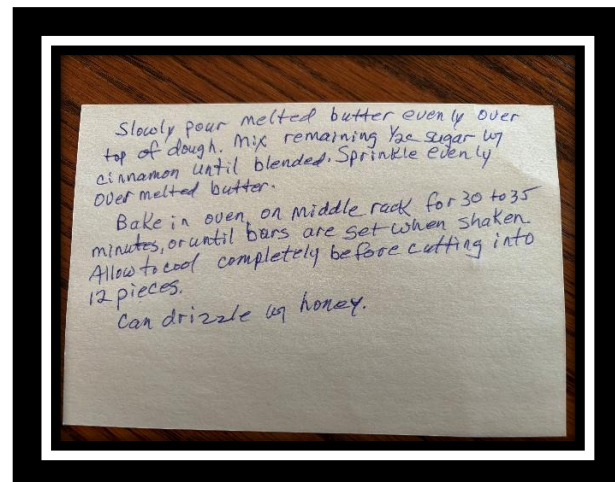 Slowly pour melted butter evenly over
top of dough. Mix remaining 1/2c sugar w/
cinnamon until blended. Sprinkle evenly
over melted butter.
Bake in oven, on middle rack for 30 to 35
minutes, or until bars are set when shaken.
Allow to cool completely before cutting into
12 pieces.
Can drizzle w/ honey.